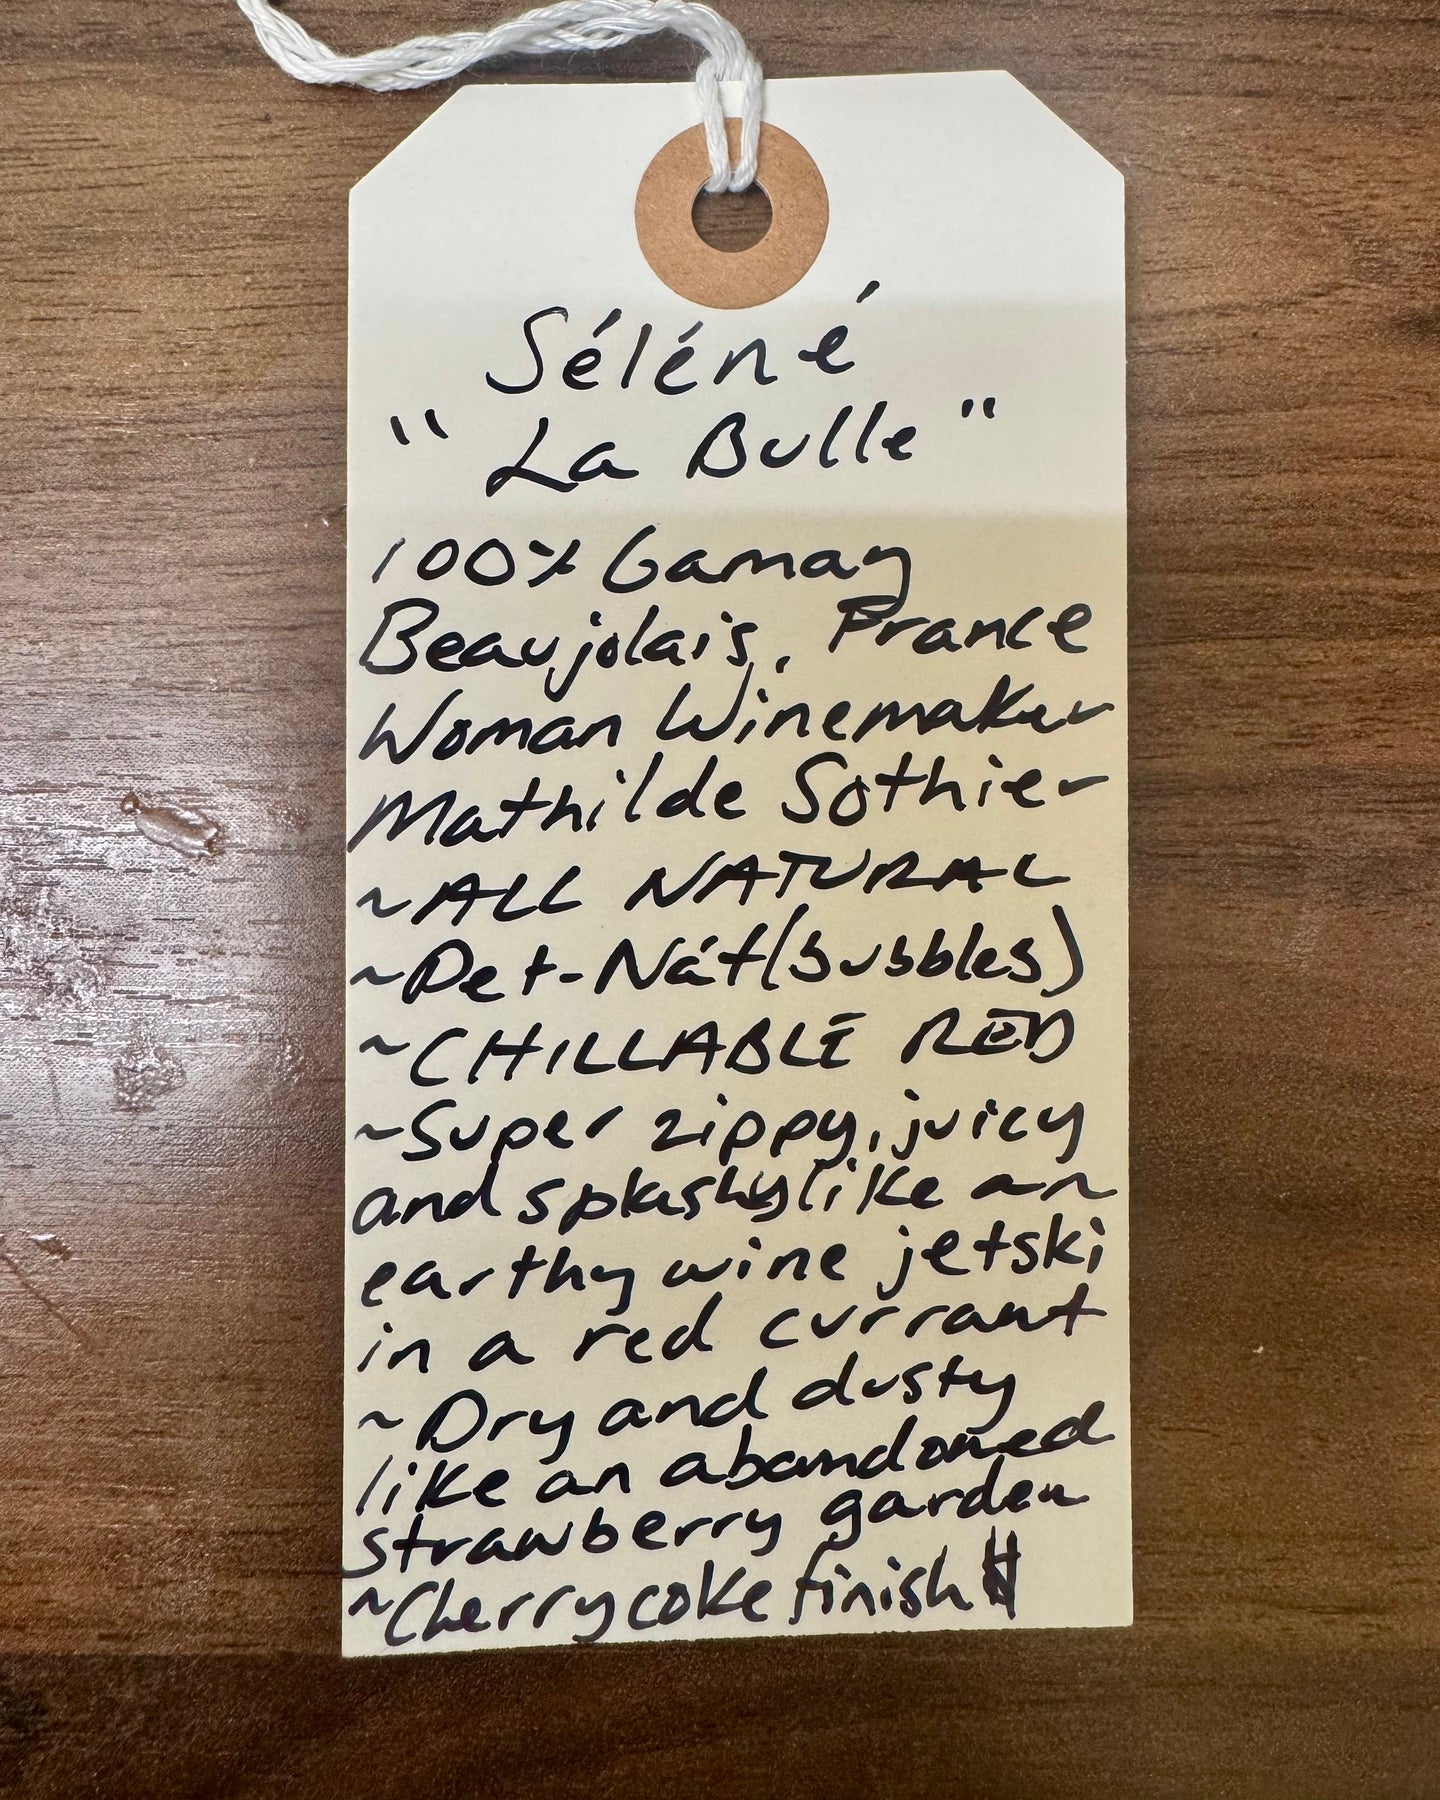 Séléné
"La Bulle"
100% Gamay
Beaujolais, France
Woman Winemaker
Mathilde Sothier
~ALL NATURAL
~Pet-Nát (bubbles)
~CHILLABLE RED
~Super zippy, juicy
and splashy like an
earthy wine jetski
in a red currant
~Dry and dusty
like an abandoned
strawberry garden
~Cherry coke finish